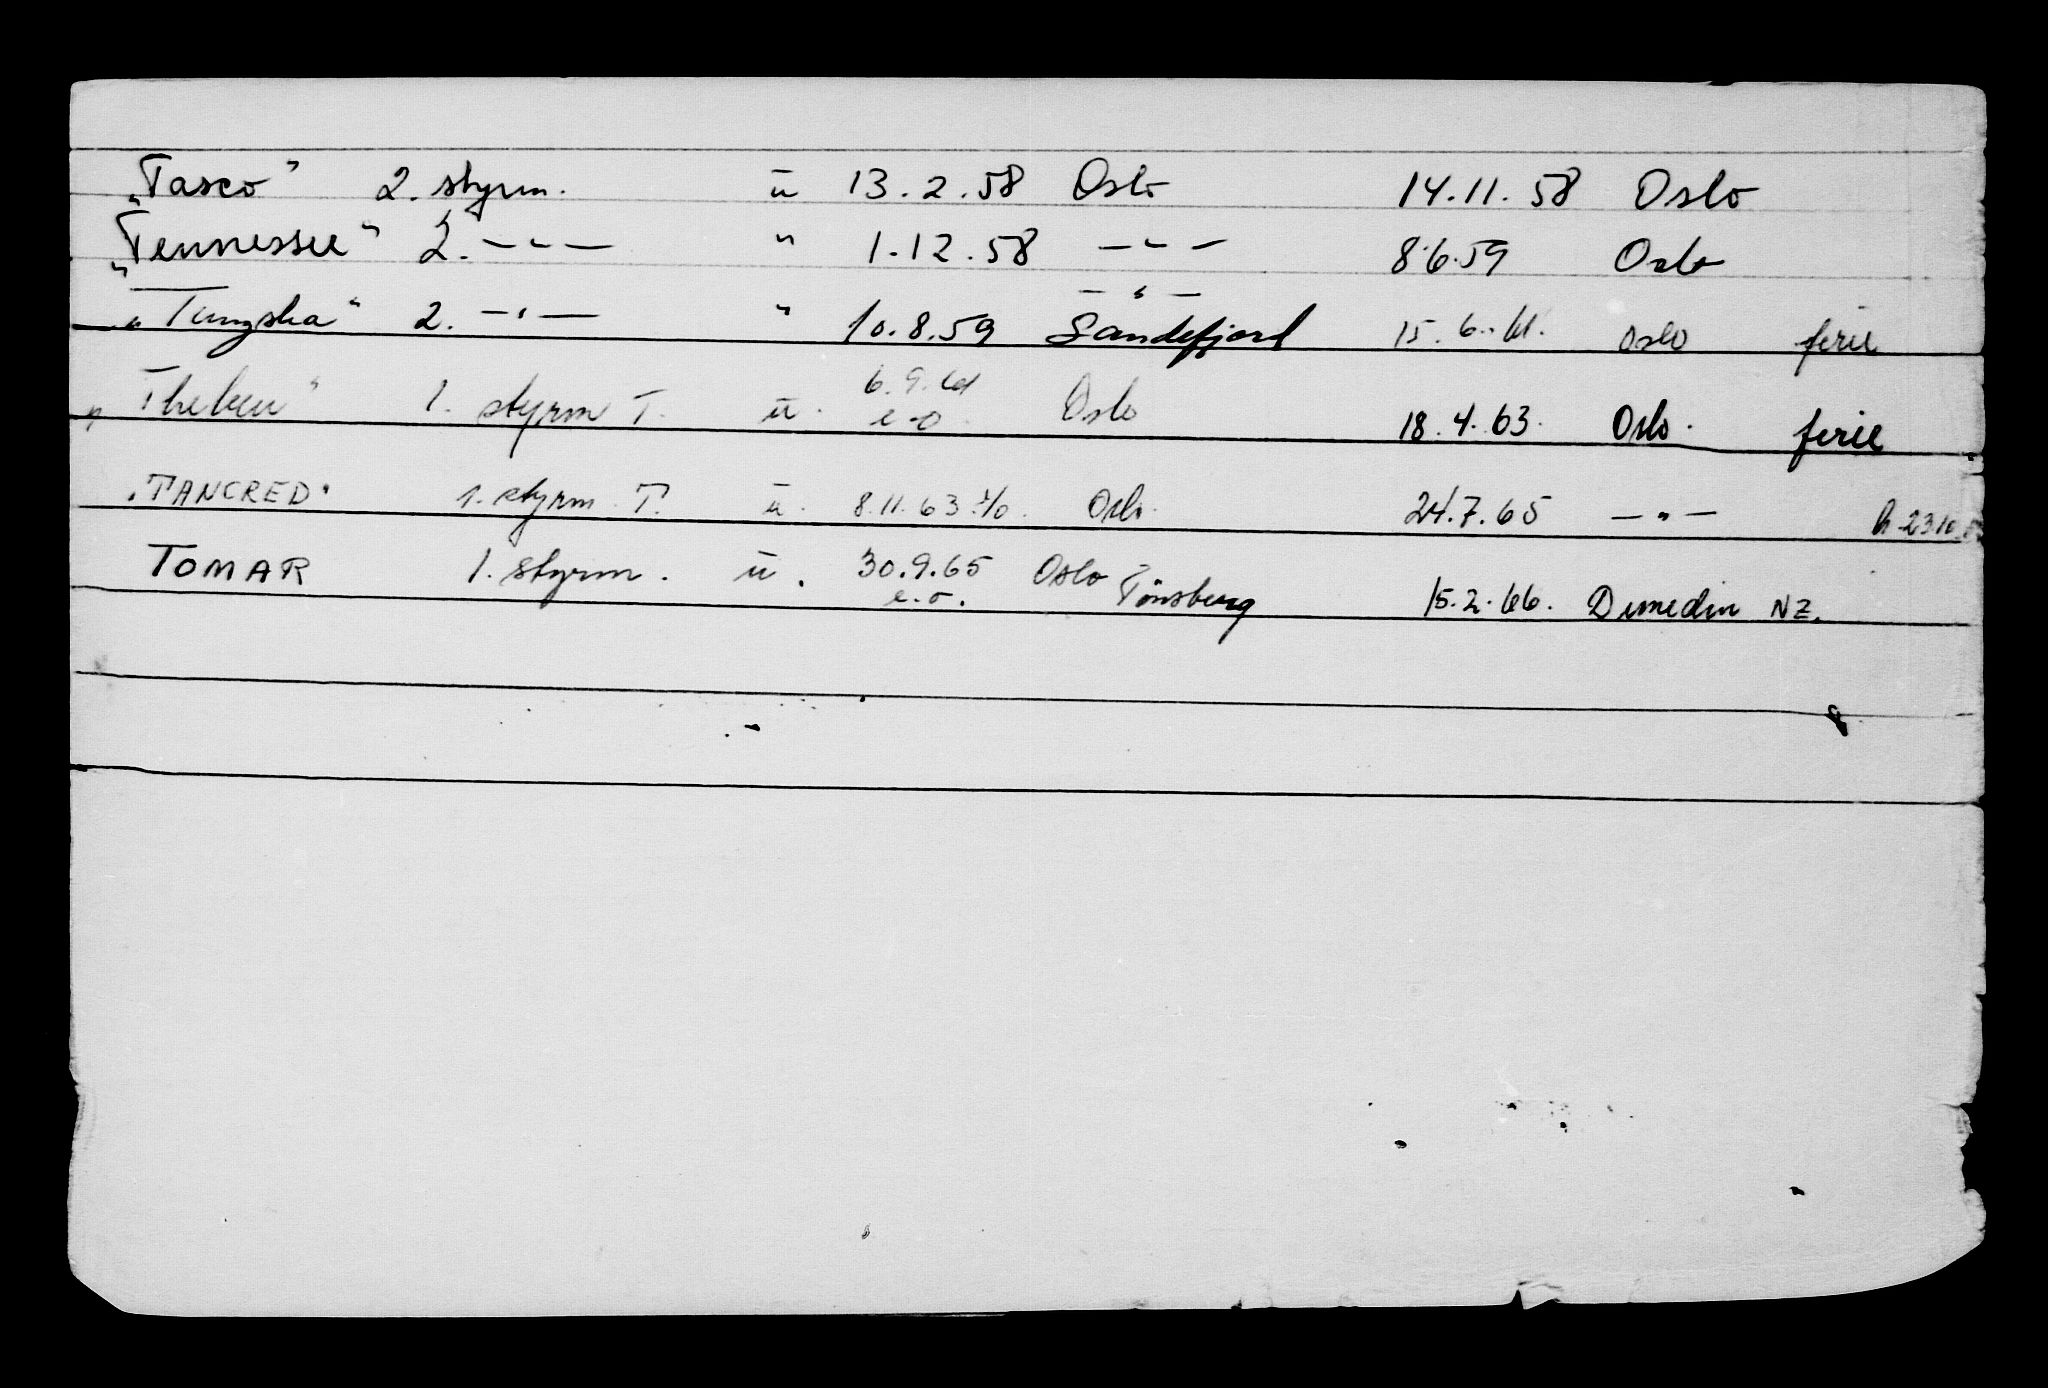 „Tasco" 2. styrm. u 13.2.58 Oslo 14.11.58 Oslo
„Tennessee" 2. —"— " 1.12.58 —"— 8.6.59 Oslo
—"—
„Tungsha" 2. —"— " 10.8.59 Sandefjord 15.6.61. Oslo ferie
6.9.61
„Theben" 1. styrm T. u. e.o. Oslo 18.4.63. Oslo. ferie
"TANCRED" 1. styrm. T. u. 8.11.63 Oslo. 24.7.65 —"—
TOMAR 1. styrm. u. 30.9.65 Oslo Tönsberg 15.2.66. Dunedin NZ.
e.o.